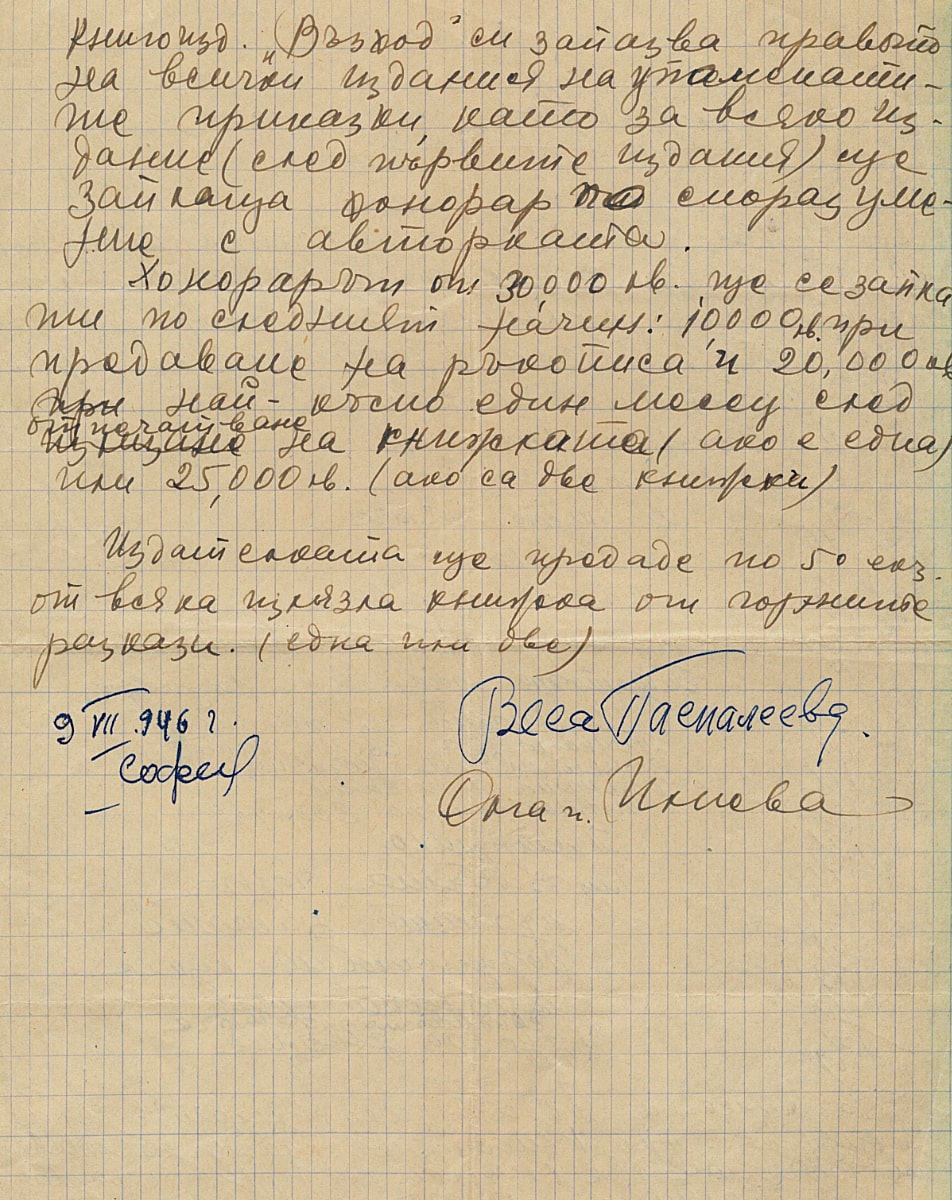 Книгоизд. „Възход" си запазва правото
на всички издания на упоменати-
те приказки, като за всяко из-
дание (след първите издания) ще
заплаща хонорар по споразуме-
ние с авторката.
Хонорарът от 30,000 лв. ще се запла
ти по следният начин: 10,000 лв. при
продаване на ръкописа и 20,000 лв
при най-късно един месец след
отпечатване
излизане на книжката (ако е една)
или 25,000 лв. (ако са две книжки)
Издателката ще продаде по 50 екз.
от всяка излязла книжка от горните
разкази. (една или две)
9 VII .946 г.
София
Веса Паспалеева.
Олга п.